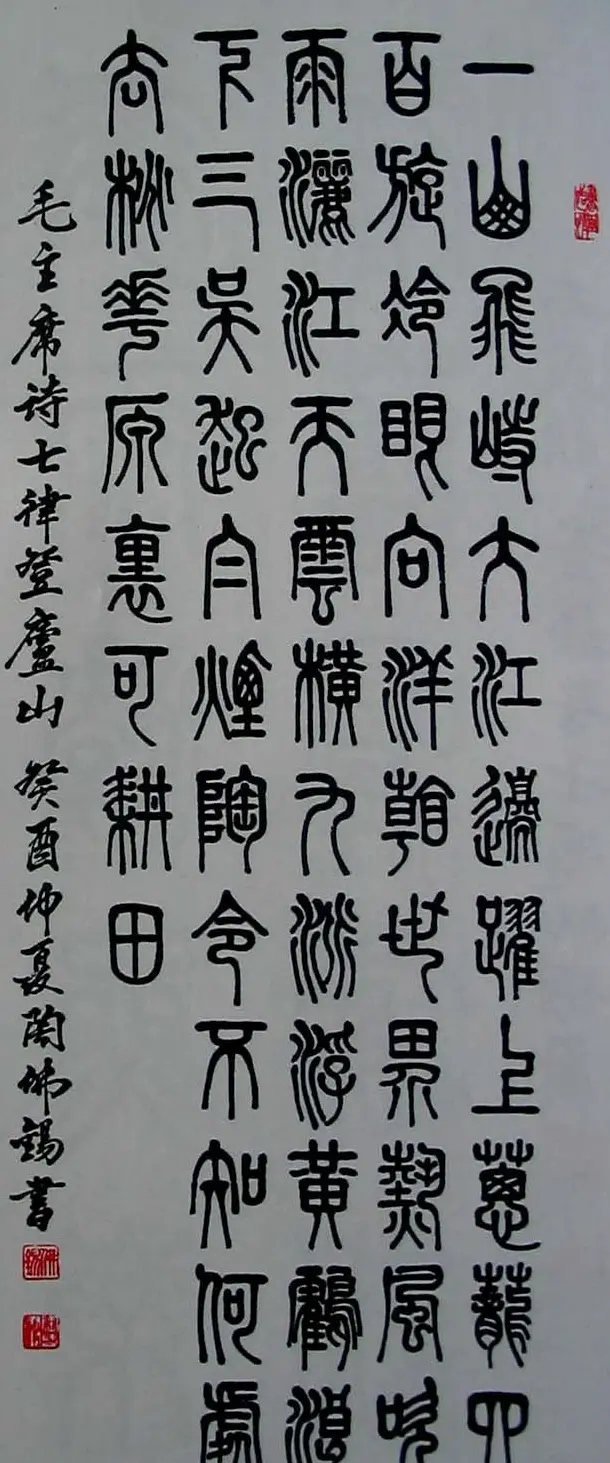 一山飛峙大江邊躍上蔥蘢四
百旋冷眼向洋看世界熱風吹
雨灑江天雲橫九派浮黃鶴浪
下三吳起白煙陶令不知何處
去桃花原裏可耕田
毛主席诗七律登廬山 癸酉仲夏陶佛錫書